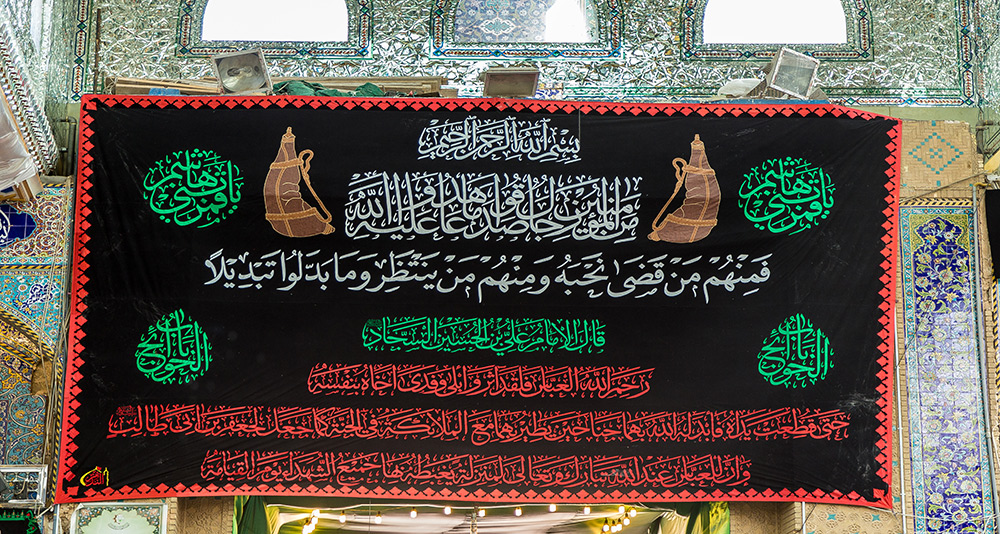 بسم الله الرحمن الرحيم
يا قمر بني هاشم
من المؤمنين رجال صدقوا ما عاهدوا الله عليه
يا قمر بني هاشم
فَمِنْهُم مَّن قَضَىٰ نَحْبَهُ وَمِنْهُم مَّن يَنتَظِرُ وَمَا بَدَّلُوا تَبْدِيلًا
يا باب الحوائج
قال الامام علي بن الحسين السجاد
يا باب الحوائج
رحم الله العباس فلقد اثر وابلى وفدى أخاه بنفسه
حتى قطعت يداه فابدله الله بهما جناحين يطير بهما مع الملائكة في الجنة كما جعل لجعفر بن ابي طالب
وان للعباس عند الله تبارك وتعالى لمنزلة يغبطه بها جميع الشهداء يوم القيامة